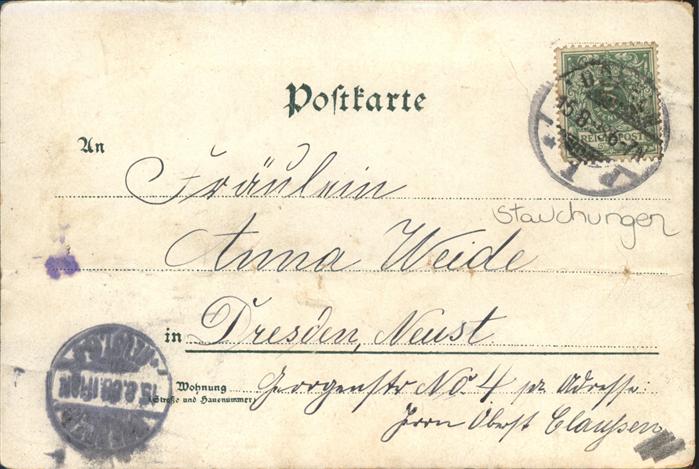 Postkarte
REICHSPOST
An
Fräulein
stauchungen
Anna Weide
in Dresden, Neust.
Wohnung
(Straße und Hausnummer)
Georgenstr No 4 pr Adresse:
Herrn Oberst Claußen